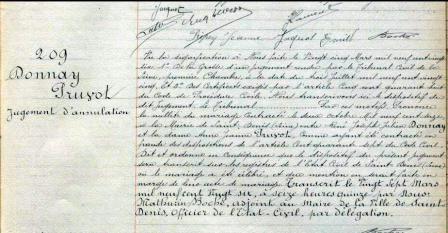 Jacquot
209
Donnay
Pruvot
Jugement d'annulation
Vu la signification à Nous faite le Vingt cinq Mars mil neuf cent vingt
six 1° De la grosse d'un jugement rendu par le Tribunal Civil de
première Chambre, à la date du trois Juillet mil neuf cent vingt
cinq, Et 2° des Certificats exigés par l'article cinq cent quarante huit
du Code de Procédure Civile, Nous transcrivons ici le dispositif du
dit jugement. Le Tribunal Par ces motifs. Prononce
la nullité du mariage contracté le deux octobre mil neuf cent
à la Mairie de Saint Denis entre Joseph Donnay
et la dame Anne Jeanne Pruvot, comme ayant été contracté en
fraude des dispositions de l'article Cent quarante sept du Code Civil
Dit et ordonne en Conséquence que le dispositif du présent jugement
sera transcrit sur les registres de l'Etat Civil de Saint Denis
où le mariage a été célébré, et que mention en serait faite en
marge de l'acte de mariage. Transcrit le Vingt Sept Mars
mil neuf cent Vingt six, à seize heures quinze, par Nous
Mathurin Boché, adjoint au Maire de la Ville de Saint
Denis, Officier de l'Etat-Civil, par délégation.